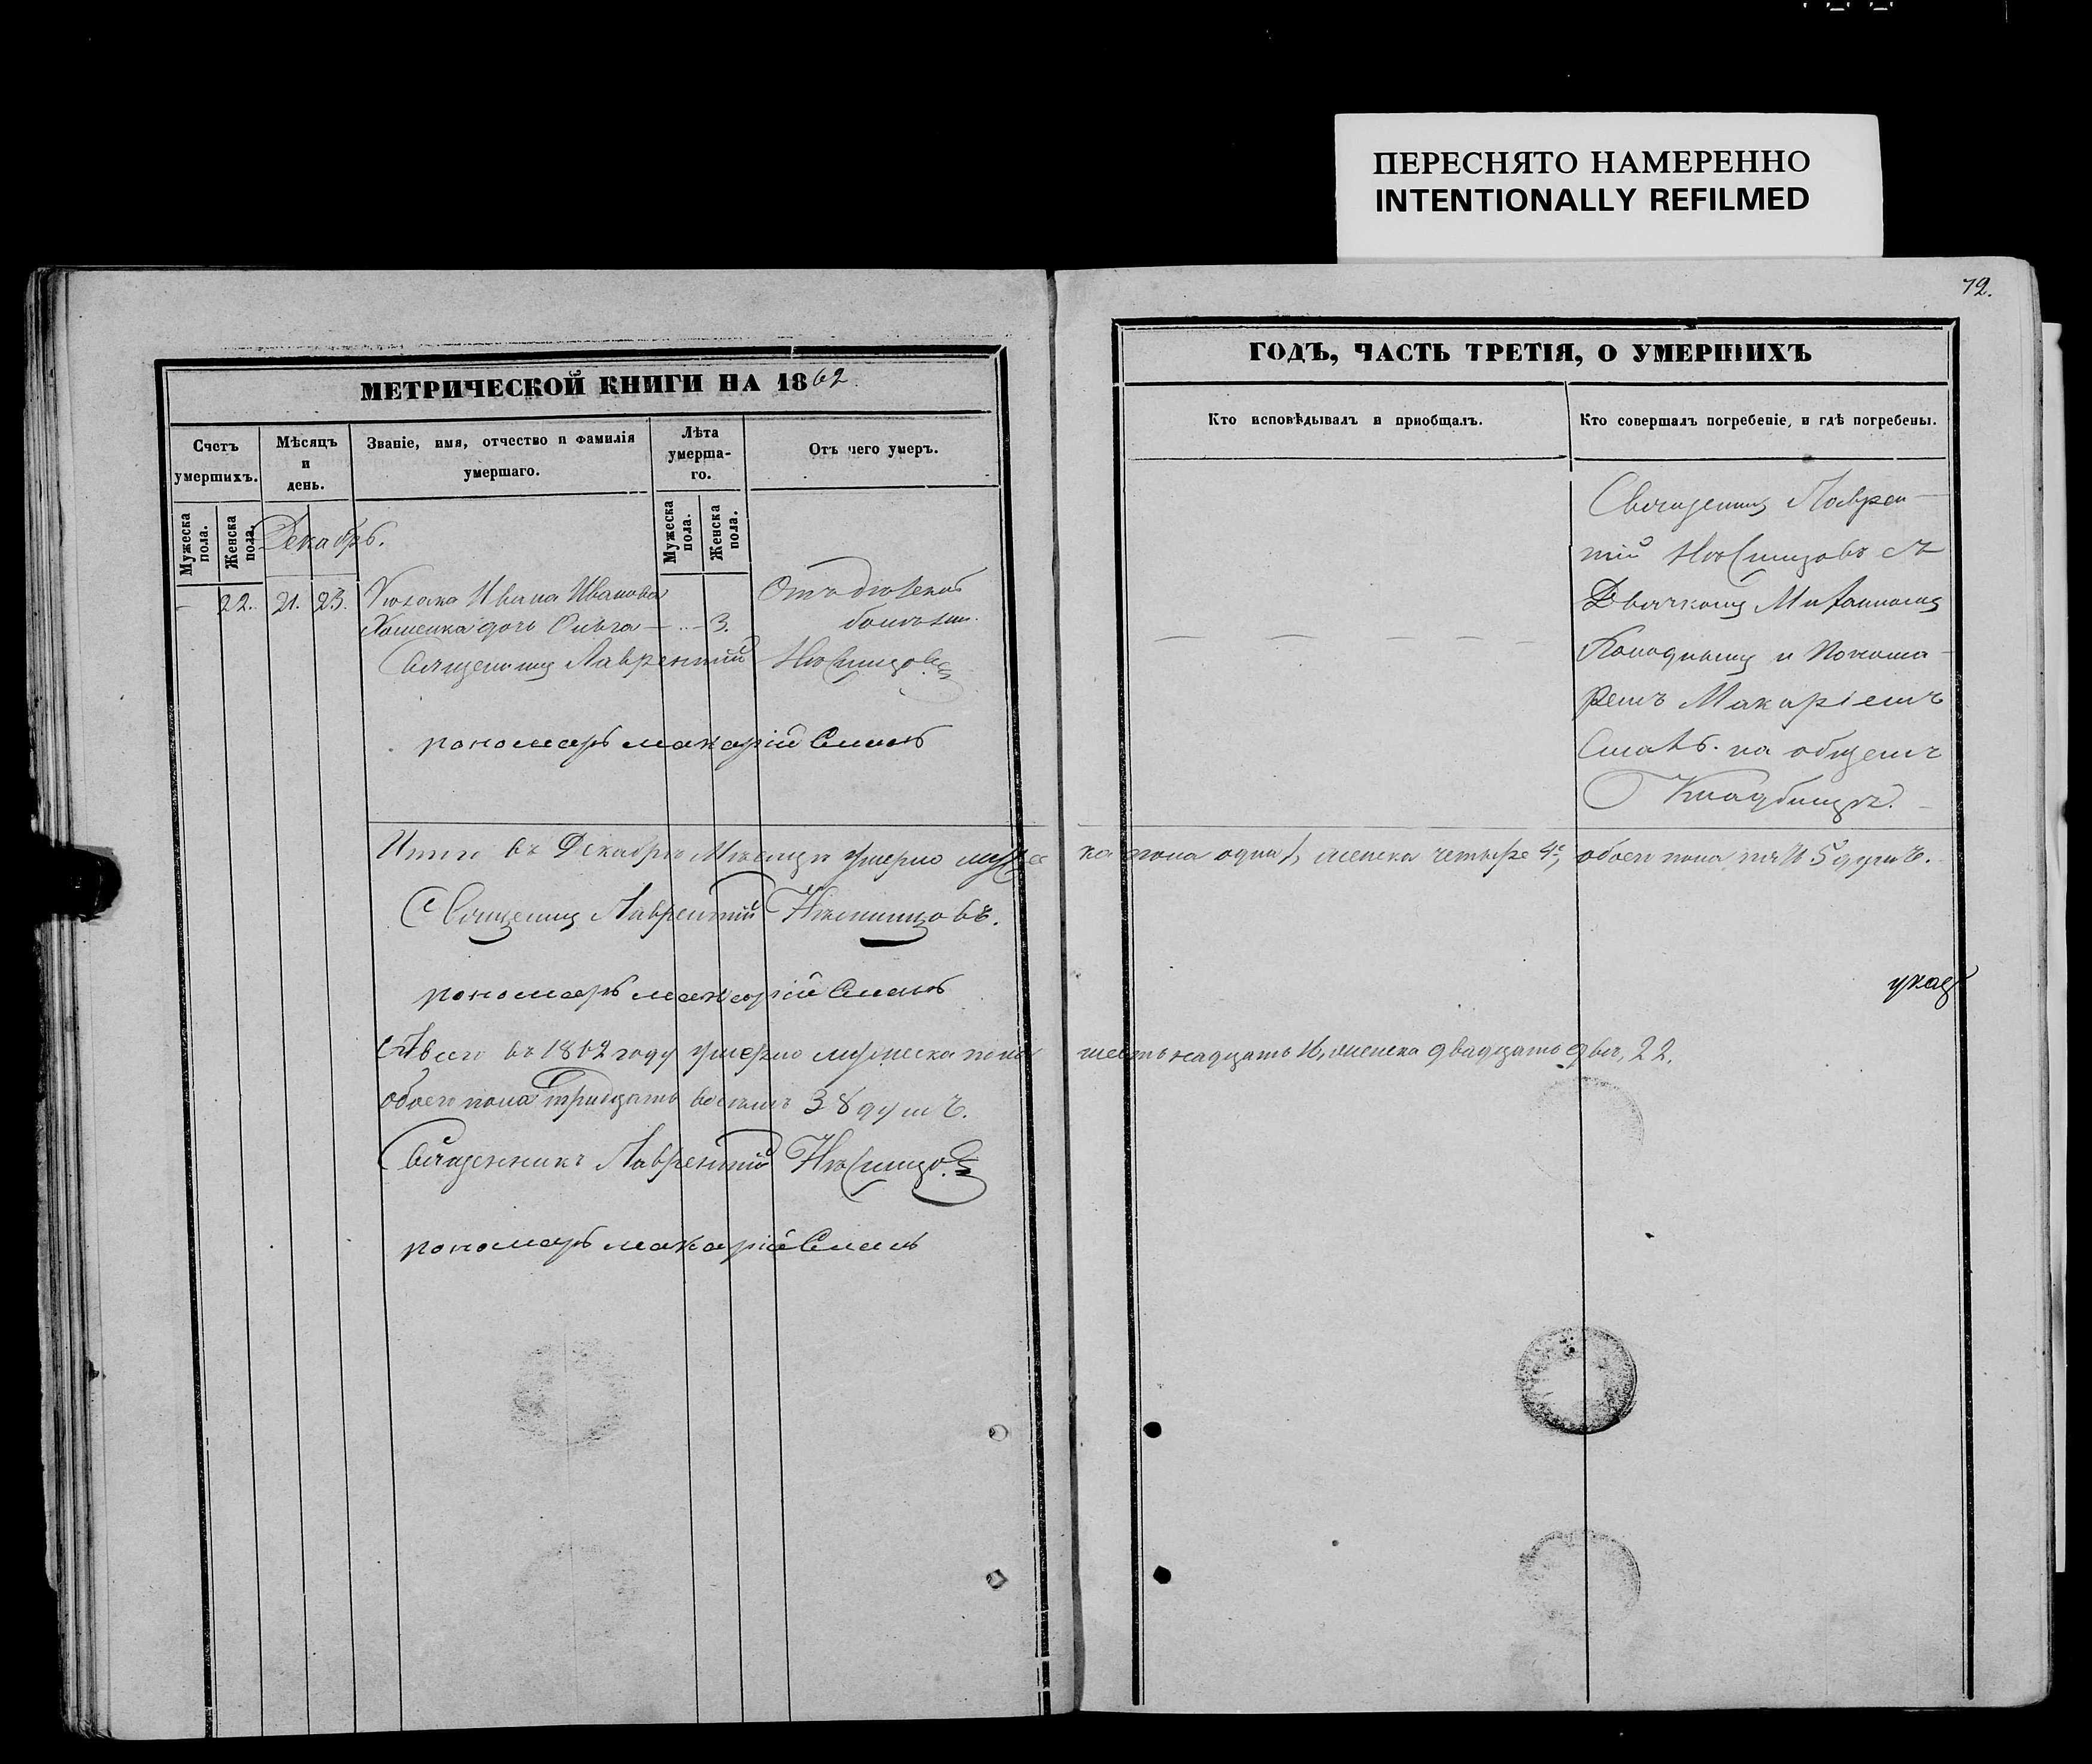 ПЕРЕСНЯТО НАМЕРЕННО
INTENTIONALLY REFILMED
72.
МЕТРИЧЕСКОЙ КНИГИ НА 1862
Счетъ умершихъ.
Мужеска пола.
Женска пола.
Мѣсяцъ и день.
Званіе, имя, отчество и фамилія умершаго.
Лѣта умершаго.
Мужеска пола.
Женска пола.
Отъ чего умеръ.
Декабрь.
22. 21. 23. Ивана Иванова
дочь Ольга 3.
Отъ
Священникъ Лаврентій
пономарь макарій
Итого въ Декабрѣ Мѣсяцѣ умерло мужес
Священникъ Лаврентій
пономарь макарій
А всего въ 1862 году умерло мужеска пола
обоего пола тридцать восемь 38 душъ.
Священникъ Лаврентій
пономарь макарій
ГОДЪ, ЧАСТЬ ТРЕТІЯ, О УМЕРШИХЪ
Кто исповѣдывалъ и пріобщалъ.
Кто совершалъ погребеніе, и гдѣ погребены.
Священникъ Лаврен-
тій съ
Дьячкомъ
и Понома-
ремъ Макаріемъ
на общемъ
Кладбищѣ.
ка пола одна 1, женска четыре 4, обоего пола пять 5 душъ.
шестьнадцать 16, женска двадцать двѣ, 22.